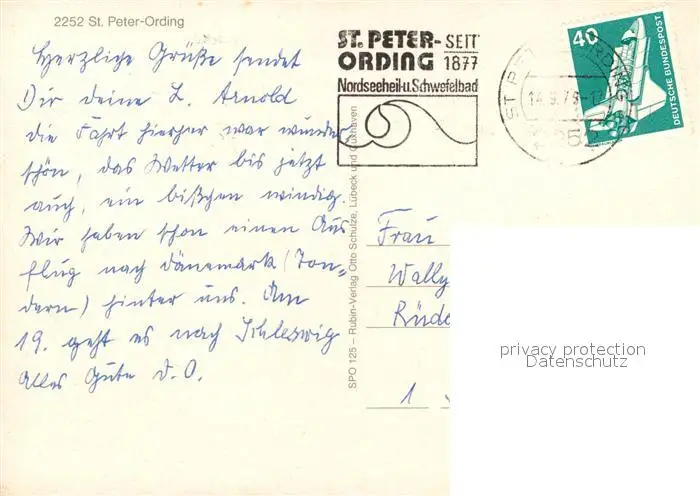 2252 St. Peter-Ording
Herzliche Grüße sendet
Dir deine L. Arnold
die Fahrt hierher war wunder
schön, das Wetter bis jetzt
auch, ein bißchen windig.
Wir haben schon einen Aus
flug nach Dänemark (Ton=
dern) hinter uns. Am
19. geht es nach Schleswig
Alles Gute D. O.
ST. PETER- SEIT
ORDING 1877
Nordseeheil-u.Schwefelbad
40
DEUTSCHE BUNDESPOST
14.9.79
SPO 125 – Rubin-Verlag Otto Schutze, Lübeck und Cuxhaven
Frau
Wally
Rüde
1
privacy protection
Datenschutz